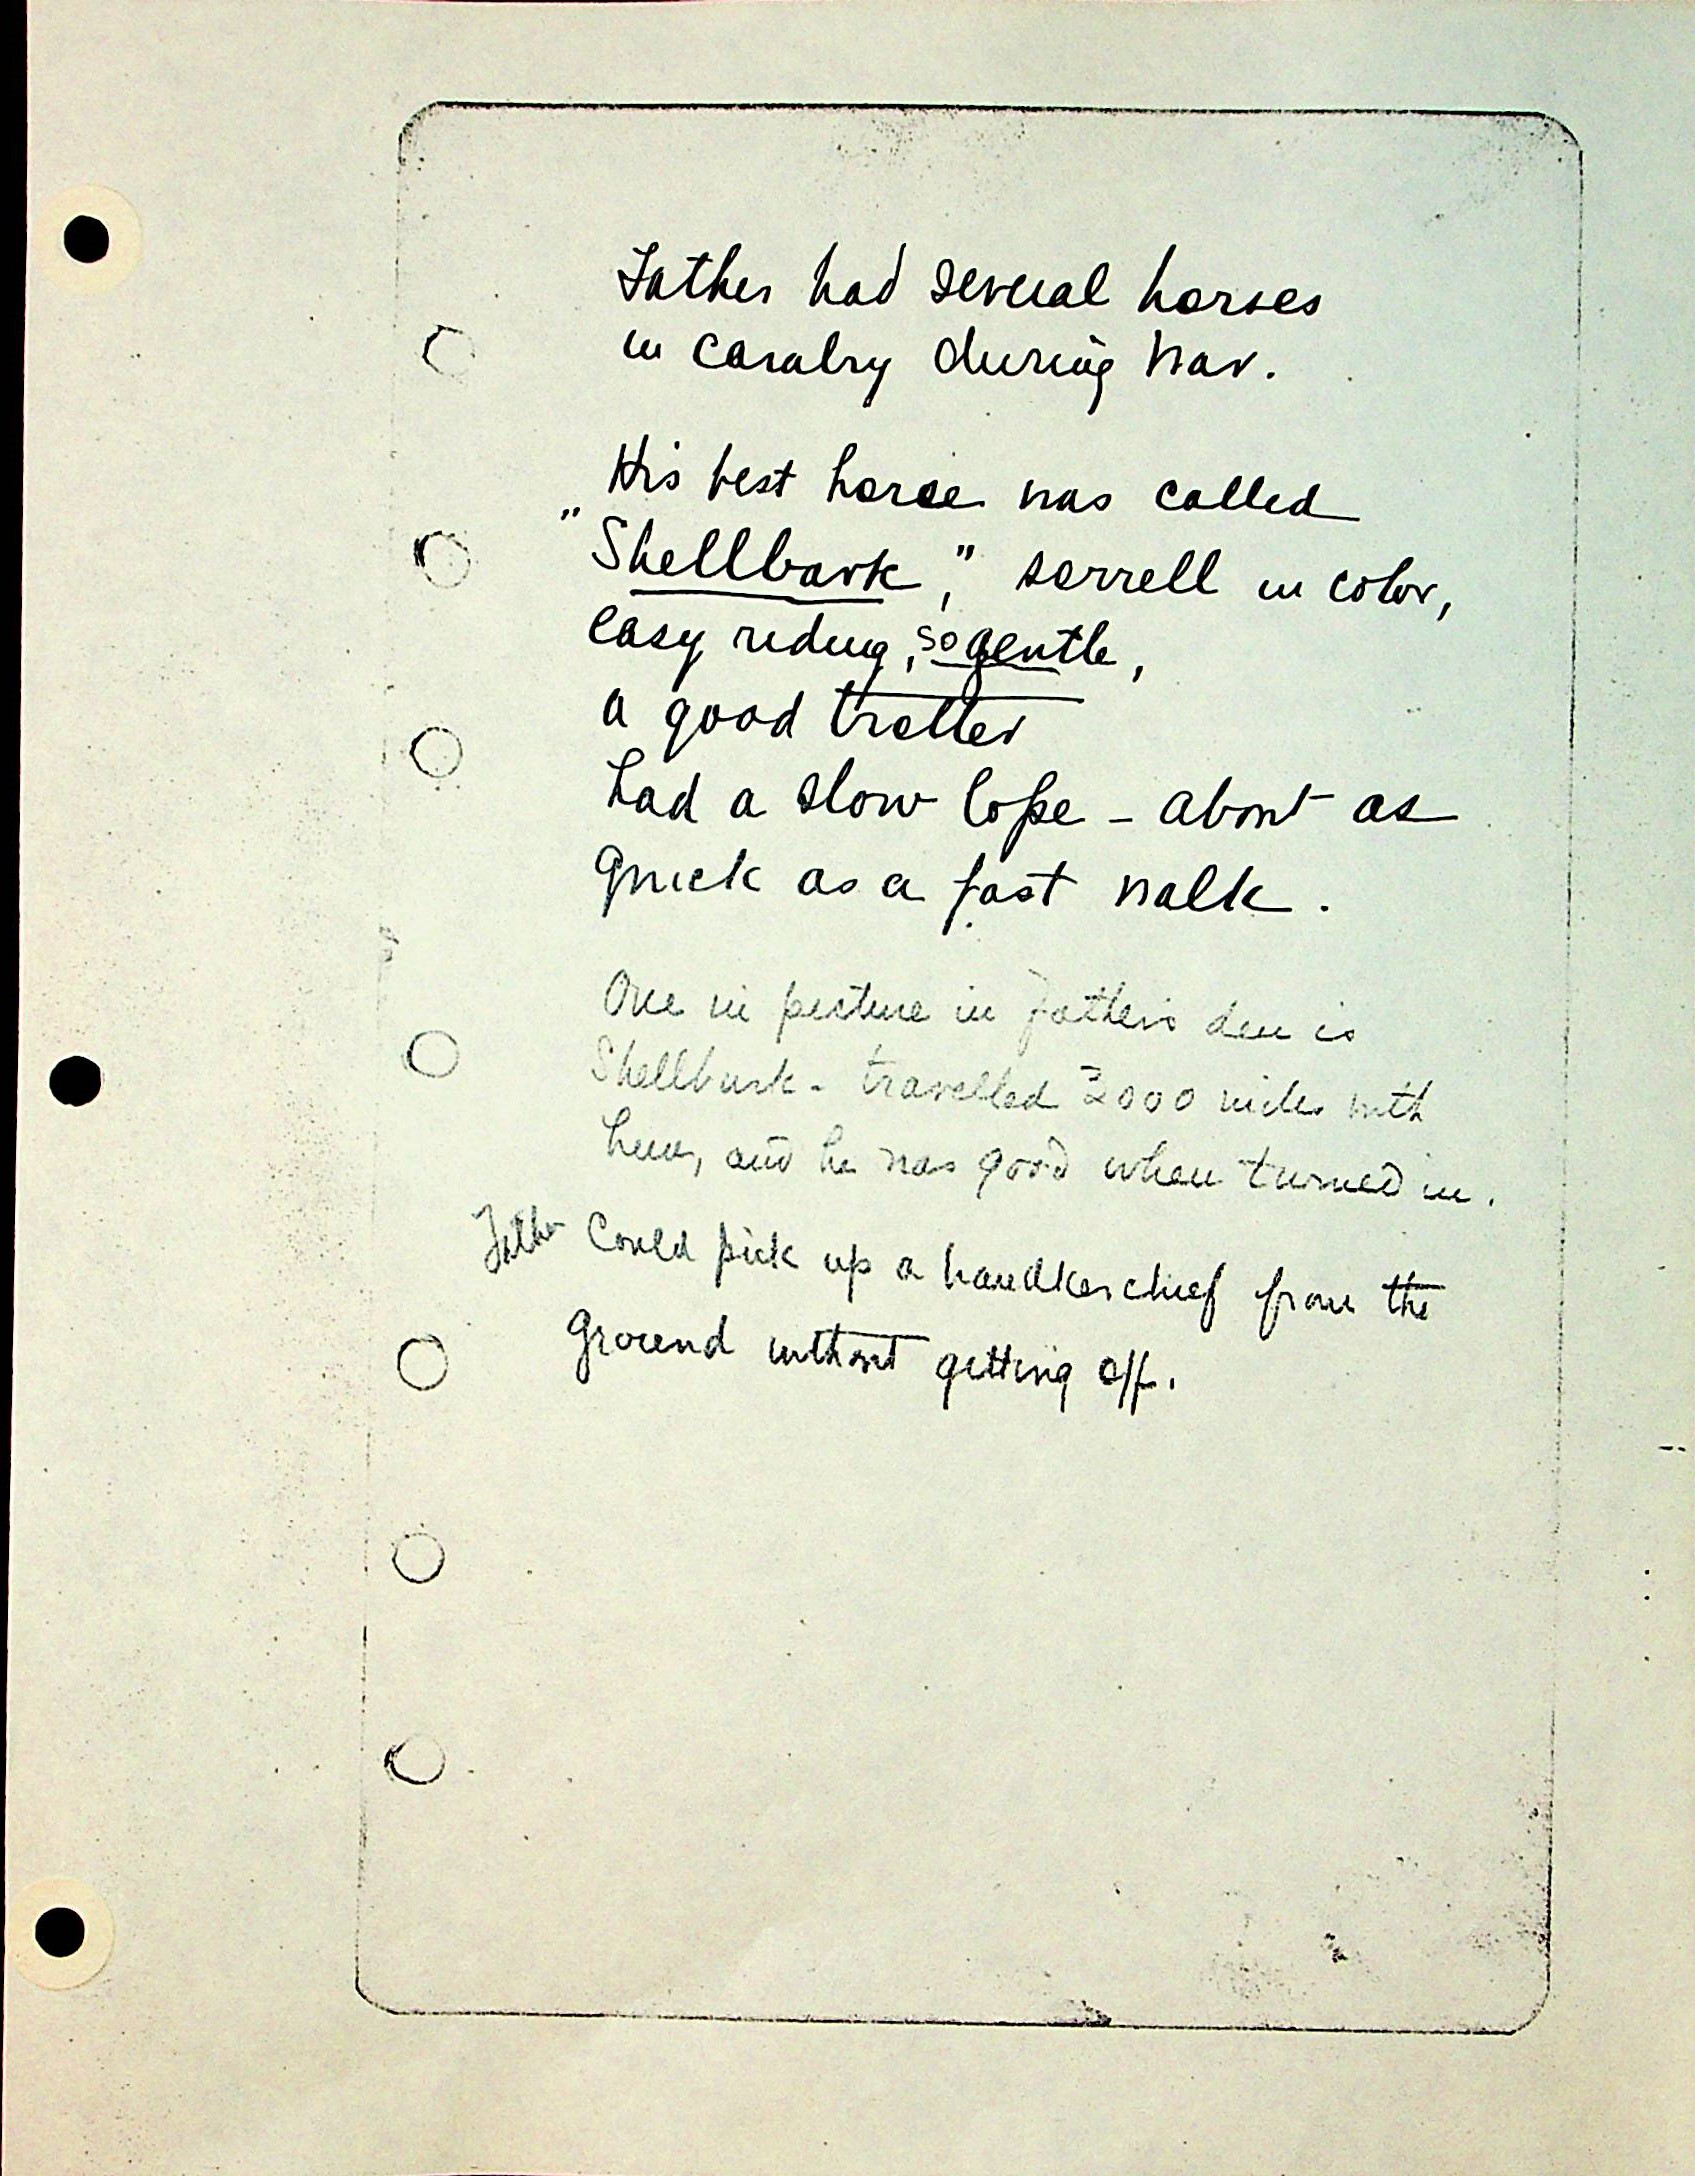 Father had several horses
in cavalry during war.
His best horse was called
"Shellbark," sorrell in color,
easy riding, so gentle,
a good trotter
had a slow lope - about as
quick as a fast walk.
One in picture in Father's den is
Shellbark - travelled 2000 miles with
him, and he was good when turned in.
Father could pick up a handkerchief from the
ground without getting off.